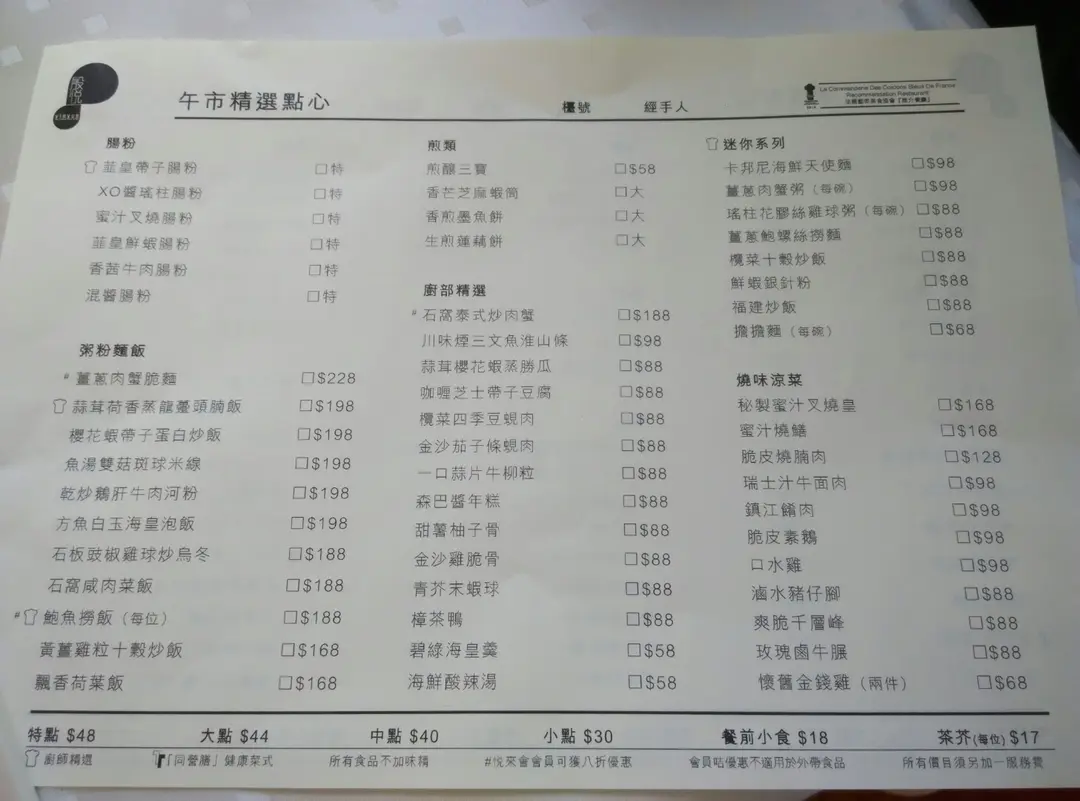 午市精選點心
檯號 經手人
La Commanderie Des Cordons Bleus De France
Recommendation Restaurant
法國藍帶美食協會「推介餐廳」
腸粉
韮皇帶子腸粉 □特
XO醬瑤柱腸粉 □特
蜜汁叉燒腸粉 □特
韮皇鮮蝦腸粉 □特
香茜牛肉腸粉 □特
混醬腸粉 □特
粥粉麵飯
#薑蔥肉蟹脆麵 □$228
蒜茸荷香蒸龍躉頭腩飯 □$198
櫻花蝦帶子蛋白炒飯 □$198
魚湯雙菇斑球米線 □$198
乾炒鵝肝牛肉河粉 □$198
方魚白玉海皇泡飯 □$198
石板豉椒雞球炒烏冬 □$188
石窩咸肉菜飯 □$188
#鮑魚撈飯（每位） □$188
黃薑雞粒十穀炒飯 □$168
飄香荷葉飯 □$168
煎類
煎釀三寶 □$58
香芒芝麻蝦筒 □大
香煎墨魚餅 □大
生煎蓮藕餅 □大
廚部精選
#石窩泰式炒肉蟹 □$188
川味煙三文魚淮山條 □$98
蒜茸櫻花蝦蒸勝瓜 □$88
咖喱芝士帶子豆腐 □$88
欖菜四季豆蜆肉 □$88
金沙茄子條蜆肉 □$88
一口蒜片牛柳粒 □$88
森巴醬年糕 □$88
甜薯柚子骨 □$88
金沙雞脆骨 □$88
青芥末蝦球 □$88
樟茶鴨 □$88
碧綠海皇羹 □$58
海鮮酸辣湯 □$58
迷你系列
卡邦尼海鮮天使麵 □$98
薑蔥肉蟹粥（每碗） □$98
瑤柱花膠絲雞球粥（每碗） □$88
薑蔥鮑螺絲撈麵 □$88
欖菜十穀炒飯 □$88
鮮蝦銀針粉 □$88
福建炒飯 □$88
擔擔麵（每碗） □$68
燒味涼菜
秘製蜜汁叉燒皇 □$168
蜜汁燒鱔 □$168
脆皮燒腩肉 □$128
瑞士汁牛面肉 □$98
鎮江餚肉 □$98
脆皮素鵝 □$98
口水雞 □$98
滷水豬仔腳 □$88
爽脆千層峰 □$88
玫瑰鹵牛𦟌 □$88
懷舊金錢雞（兩件） □$68
特點 $48 大點 $44 中點 $40 小點 $30 餐前小食 $18 茶芥(每位) $17
廚師精選 「同營膳」健康菜式 所有食品不加味精 #悅來會會員可獲八折優惠 會員咭優惠不適用於外帶食品 所有價目須另加一服務費